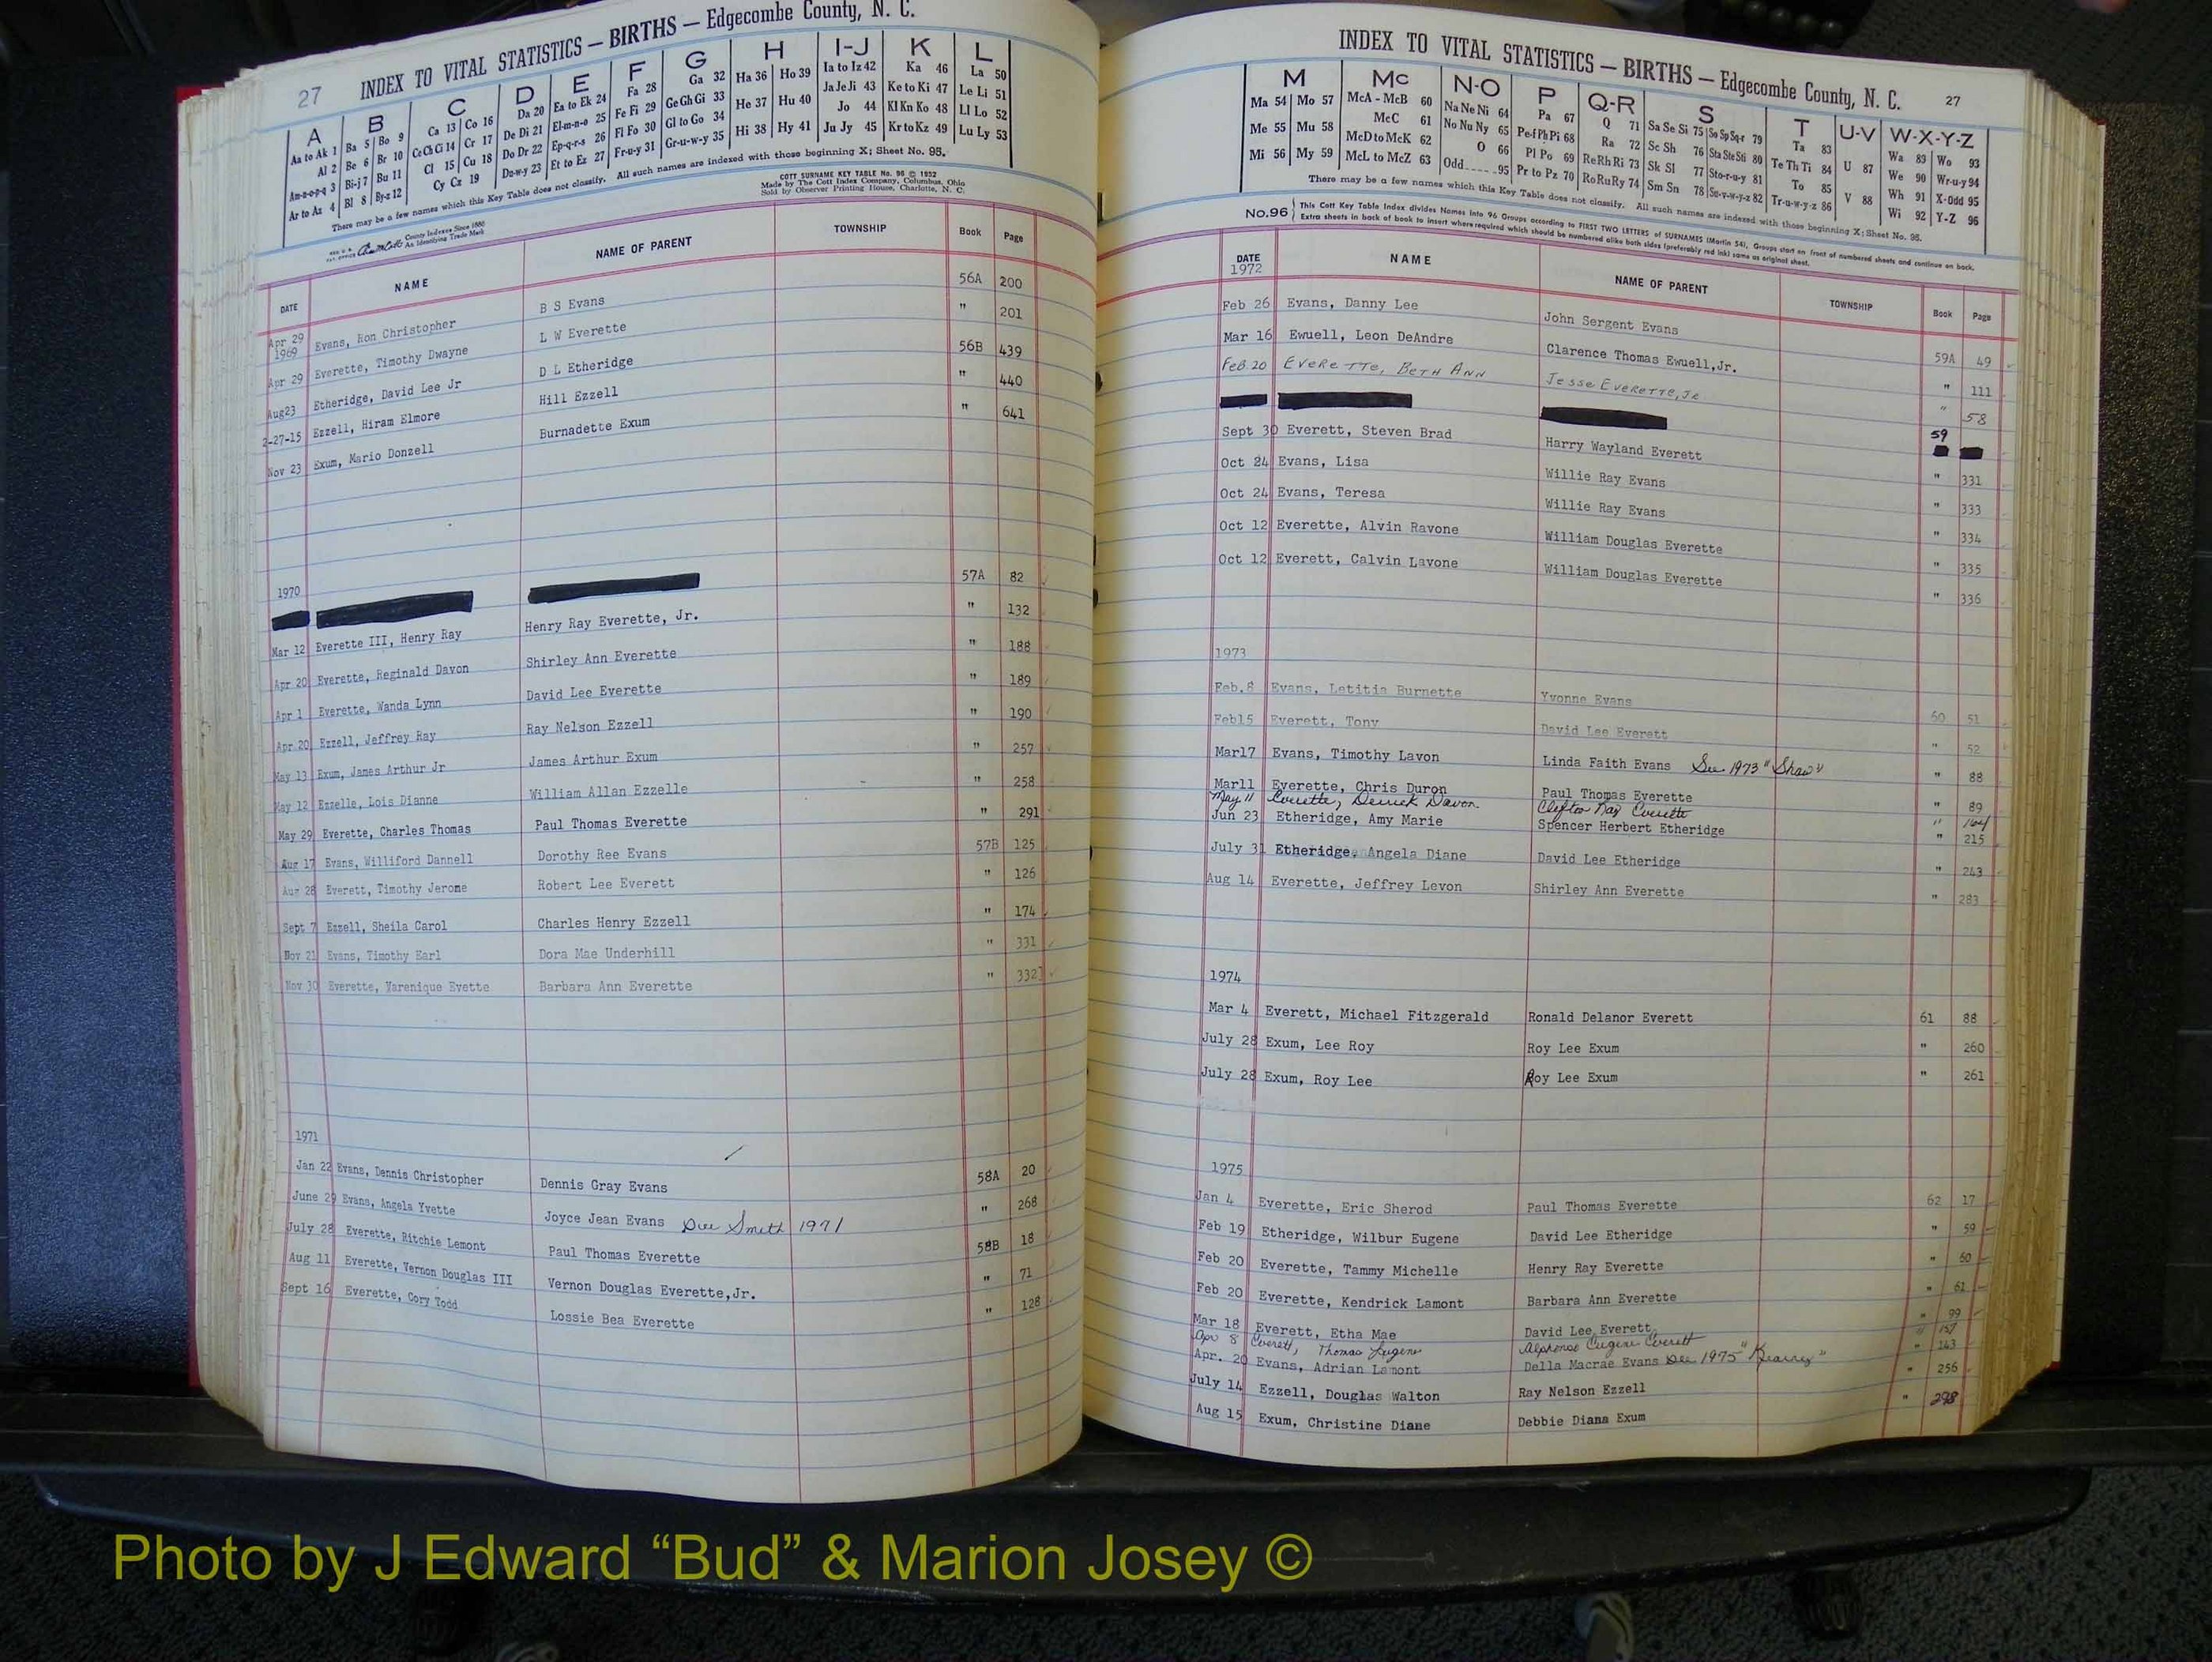 27 INDEX TO VITAL STATISTICS — BIRTHS — Edgecombe County, N. C.
A B C D E F G H I-J K L
Aa to Ak 1 Ba 5 Bo 9 Ca 13 Co 16 Da 20 Ea to Ek 24 Fa 28 Ga 32 Ha 36 Ho 39 Ia to Iz 42 Ka 46 La 50
Al 2 Be 6 Br 10 Ce Ch Ci 14 Cr 17 De Di 21 El-m-n-o 25 Fe Fi 29 Ge Gh Gi 33 He 37 Hu 40 Ja Je Ji 43 Ke to Ki 47 Le Li 51
Am-n-o-p-q 3 Bi-j 7 Bu 11 Cl 15 Cu 18 Do Dr 22 Ep-q-r-s 26 Fl Fo 30 Gl to Go 34 Hi 38 Hy 41 Jo 44 Kl Kn Ko 48 Ll Lo 52
Ar to Az 4 Bl 8 By-z 12 Cy Cz 19 Du-w-y 23 Et to Ez 27 Fr-u-y 31 Gr-u-w-y 35 Ju Jy 45 Kr to Kz 49 Lu Ly 53
There may be a few names which this Key Table does not classify. All such names are indexed with those beginning X; Sheet No. 95.
COTT SURNAME KEY TABLE No. 96 © 1952
Made by The Cott Index Company, Columbus, Ohio
Sold by Observer Printing House, Charlotte, N. C.
County Indexes Since 1888
An Identifying Trade Mark
DATE NAME NAME OF PARENT TOWNSHIP Book Page
Apr 29 1969 Evans, Ron Christopher B S Evans 56A 200
Apr 29 Everette, Timothy Dwayne L W Everette " 201
Aug23 Etheridge, David Lee Jr D L Etheridge 56B 439
2-27-15 Ezzell, Hiram Elmore Hill Ezzell " 440
Nov 23 Exum, Mario Donzell Burnadette Exum " 641
1970
57A 82
Mar 12 Everette III, Henry Ray Henry Ray Everette, Jr. " 132
Apr 20 Everette, Reginald Davon Shirley Ann Everette " 188
Apr 1 Everette, Wanda Lynn David Lee Everette " 189
Apr 20 Ezzell, Jeffrey Ray Ray Nelson Ezzell " 190
May 13 Exum, James Arthur Jr James Arthur Exum " 257
May 12 Ezzelle, Lois Dianne William Allan Ezzelle " 258
May 29 Everette, Charles Thomas Paul Thomas Everette " 291
Aug 17 Evans, Williford Dannell Dorothy Ree Evans 57B 125
Aug 28 Everett, Timothy Jerome Robert Lee Everett " 126
Sept 7 Ezzell, Sheila Carol Charles Henry Ezzell " 174
Nov 21 Evans, Timothy Earl Dora Mae Underhill " 331
Nov 30 Everette, Varenique Evette Barbara Ann Everette " 332
1971
Jan 22 Evans, Dennis Christopher Dennis Gray Evans 58A 20
June 29 Evans, Angela Yvette Joyce Jean Evans See Smith 1971 " 268
July 28 Everette, Ritchie Lemont Paul Thomas Everette 58B 18
Aug 11 Everette, Vernon Douglas III Vernon Douglas Everette,Jr. " 71
Sept 16 Everette, Cory Todd Lossie Bea Everette " 128
INDEX TO VITAL STATISTICS — BIRTHS — Edgecombe County, N. C. 27
M Mc N-O P Q-R S T U-V W-X-Y-Z
Ma 54 Mo 57 McA - McB 60 Na Ne Ni 64 Pa 67 Q 71 Sa Se Si 75 So Sp Sq-r 79 Ta 83 U 87 Wa 89 Wo 93
Me 55 Mu 58 McC 61 No Nu Ny 65 Pe-f Ph Pi 68 Ra 72 Sc Sh 76 Sta Ste Sti 80 Te Th Ti 84 V 88 We 90 Wr-u-y 94
Mi 56 My 59 McD to McK 62 O 66 Pl Po 69 Re Rh Ri 73 Sk Sl 77 Sto-r-u-y 81 To 85 Wh 91 X-Odd 95
McL to McZ 63 Odd 95 Pr to Pz 70 Ro Ru Ry 74 Sm Sn 78 Su-v-w-y-z 82 Tr-u-w-y-z 86 Wi 92 Y-Z 96
There may be a few names which this Key Table does not classify. All such names are indexed with those beginning X; Sheet No. 95.
No.96 This Cott Key Table Index divides Names into 96 Groups according to FIRST TWO LETTERS of SURNAMES (Martin 54), Groups start on front of numbered sheets and continue on back.
Extra sheets in back of book to insert where required which should be numbered alike both sides (preferably red ink) same as original sheet.
DATE NAME NAME OF PARENT TOWNSHIP Book Page
1972
Feb 26 Evans, Danny Lee John Sergent Evans 59A 49
Mar 16 Ewuell, Leon DeAndre Clarence Thomas Ewuell,Jr. " 111
Feb. 20 Everette, Beth Ann Jesse Everette, Jr " 58
59
Sept 30 Everett, Steven Brad Harry Wayland Everett " 331
Oct 24 Evans, Lisa Willie Ray Evans " 333
Oct 24 Evans, Teresa Willie Ray Evans " 334
Oct 12 Everette, Alvin Ravone William Douglas Everette " 335
Oct 12 Everett, Calvin Lavone William Douglas Everette " 336
1973
Feb.8 Evans, Letitia Burnette Yvonne Evans 60 51
Feb15 Everett, Tony David Lee Everett " 52
Mar17 Evans, Timothy Lavon Linda Faith Evans See 1973 "Shaw" " 88
Mar11 Everette, Chris Duron Paul Thomas Everette " 89
May 11 Everette, Derrick Davon Clifton Ray Everette " 164
Jun 23 Etheridge, Amy Marie Spencer Herbert Etheridge " 215
July 31 Etheridge, Angela Diane David Lee Etheridge " 243
Aug 14 Everette, Jeffrey Levon Shirley Ann Everette " 283
1974
Mar 4 Everett, Michael Fitzgerald Ronald Delanor Everett 61 88
July 28 Exum, Lee Roy Roy Lee Exum " 260
July 28 Exum, Roy Lee Roy Lee Exum " 261
1975
Jan 4 Everette, Eric Sherod Paul Thomas Everette 62 17
Feb 19 Etheridge, Wilbur Eugene David Lee Etheridge " 59
Feb 20 Everette, Tammy Michelle Henry Ray Everette " 60
Feb 20 Everette, Kendrick Lamont Barbara Ann Everette " 61
Mar 18 Everett, Etha Mae David Lee Everett " 99
Apr 8 Everett, Thomas Eugene Alphonso Eugene Everett " 157
Apr. 20 Evans, Adrian Lamont Della Macrae Evans See 1975 " 143
July 14 Ezzell, Douglas Walton Ray Nelson Ezzell " 256
Aug 15 Exum, Christine Diane Debbie Diana Exum " 298
Photo by J Edward “Bud” & Marion Josey ©